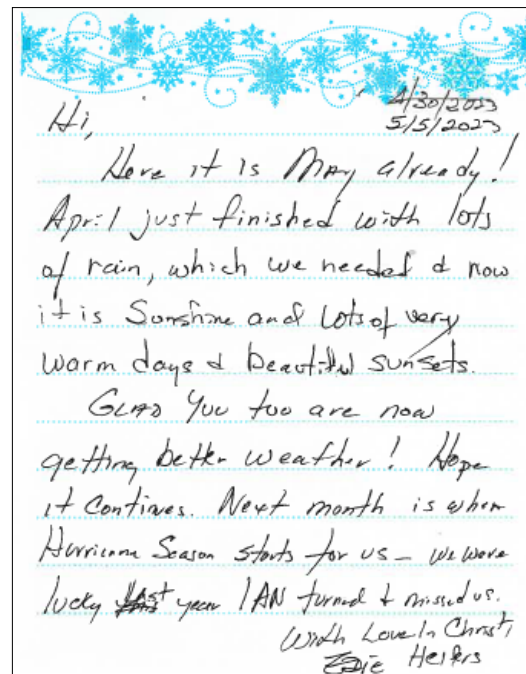 4/30/2023
5/5/2023
Hi,
Here it is May already!
April just finished with lots
of rain, which we needed & now
it is Sunshine and lots of very
warm days & beautiful sunsets.
GLAD YOU too are now
getting better weather! Hope
it continues. Next month is when
Hurricane Season starts for us – we were
lucky last year IAN turned & missed us.
With Love In Christ,
Edie